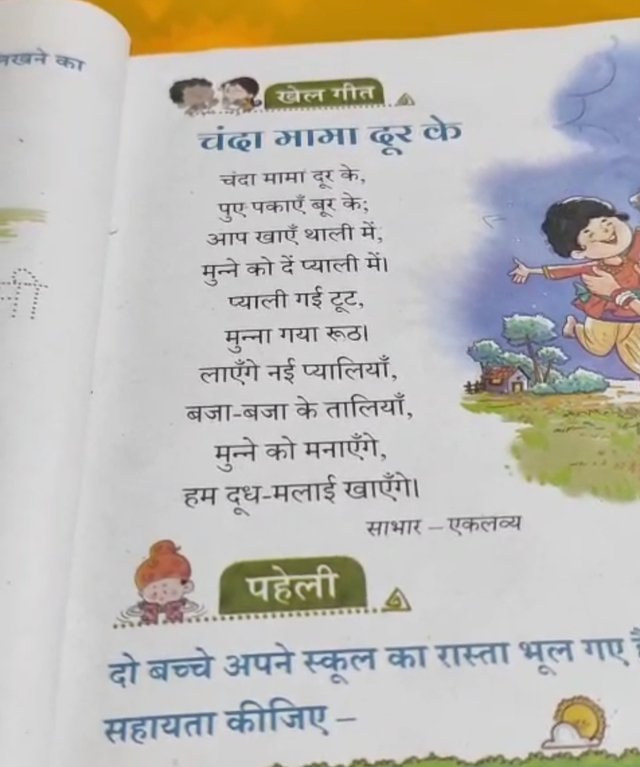 का
खेल गीत
चंदा मामा दूर के
चंदा मामा दूर के,
पुए पकाएँ बूर के;
आप खाएँ थाली में,
मुन्ने को दें प्याली में।
प्याली गई टूट,
मुन्ना गया रूठ।
लाएँगे नई प्यालियाँ,
बजा-बजा के तालियाँ,
मुन्ने को मनाएँगे,
हम दूध-मलाई खाएँगे।
साभार – एकलव्य
पहेली
दो बच्चे अपने स्कूल का रास्ता भूल गए
सहायता कीजिए –